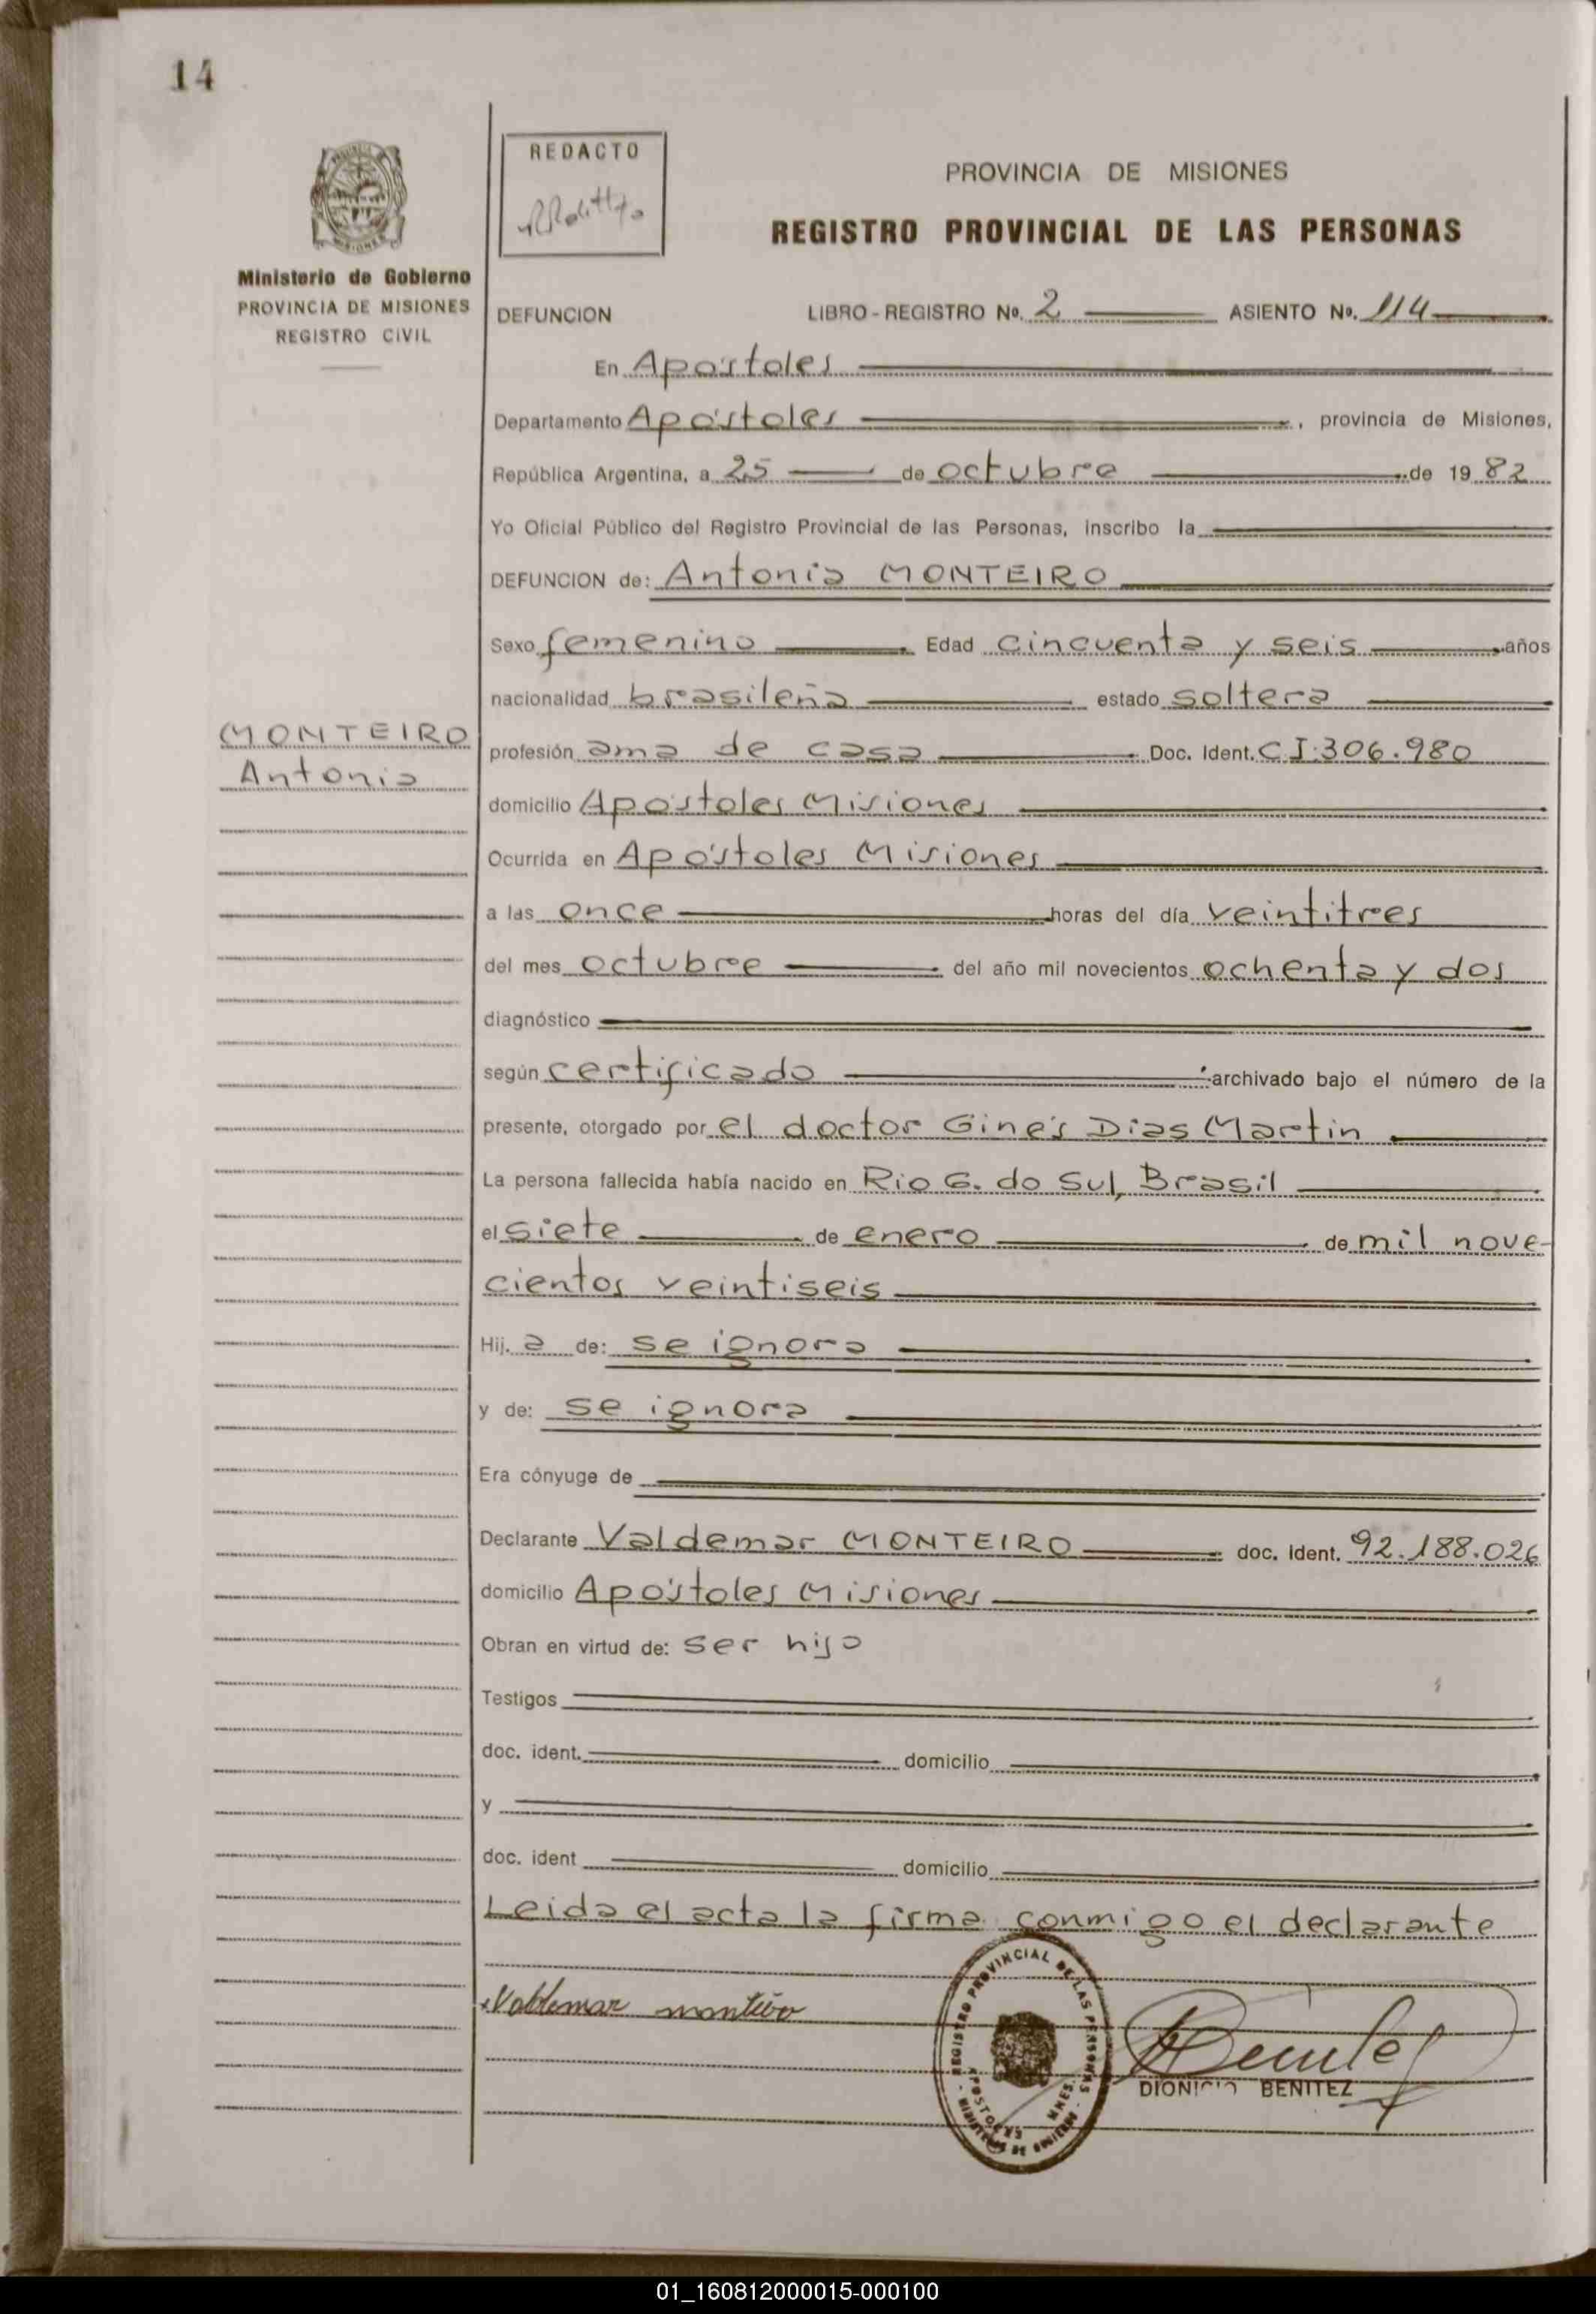 14
REDACTO
PROVINCIA DE MISIONES
REGISTRO PROVINCIAL DE LAS PERSONAS
Ministerio de Gobierno
PROVINCIA DE MISIONES
REGISTRO CIVIL
DEFUNCION LIBRO - REGISTRO Nº. 2 ASIENTO Nº. 114
En Apóstoles
Departamento Apóstoles, provincia de Misiones,
República Argentina, a 25 de octubre de 1982
Yo Oficial Público del Registro Provincial de las Personas, inscribo la
DEFUNCION de: Antonia MONTEIRO
Sexo femenino Edad cincuenta y seis años
nacionalidad brasileña estado soltera
MONTEIRO
Antonia
profesión ama de casa Doc. Ident. C.I.306.980
domicilio Apóstoles Misiones
Ocurrida en Apóstoles Misiones
a las once horas del día veintitres
del mes octubre del año mil novecientos ochenta y dos
diagnóstico
según certificado archivado bajo el número de la
presente, otorgado por el doctor Ginés Dias Martin
La persona fallecida había nacido en Rio G. do Sul, Brasil
el siete de enero de mil nove-
cientos veintiseis
Hij. a de: se ignora
y de: se ignora
Era cónyuge de
Declarante Valdemar MONTEIRO doc. Ident. 92.188.026
domicilio Apóstoles Misiones
Obran en virtud de: ser hijo
Testigos
doc. ident. domicilio
y
doc. ident domicilio
Leida el acta la firma conmigo el declarante
Valdemar monteiro
REGISTRO PROVINCIAL DE LAS PERSONAS
APOSTOLES MNES.
MINISTERIO DE GOBIERNO
DIONICIO BENITEZ
01_160812000015-000100